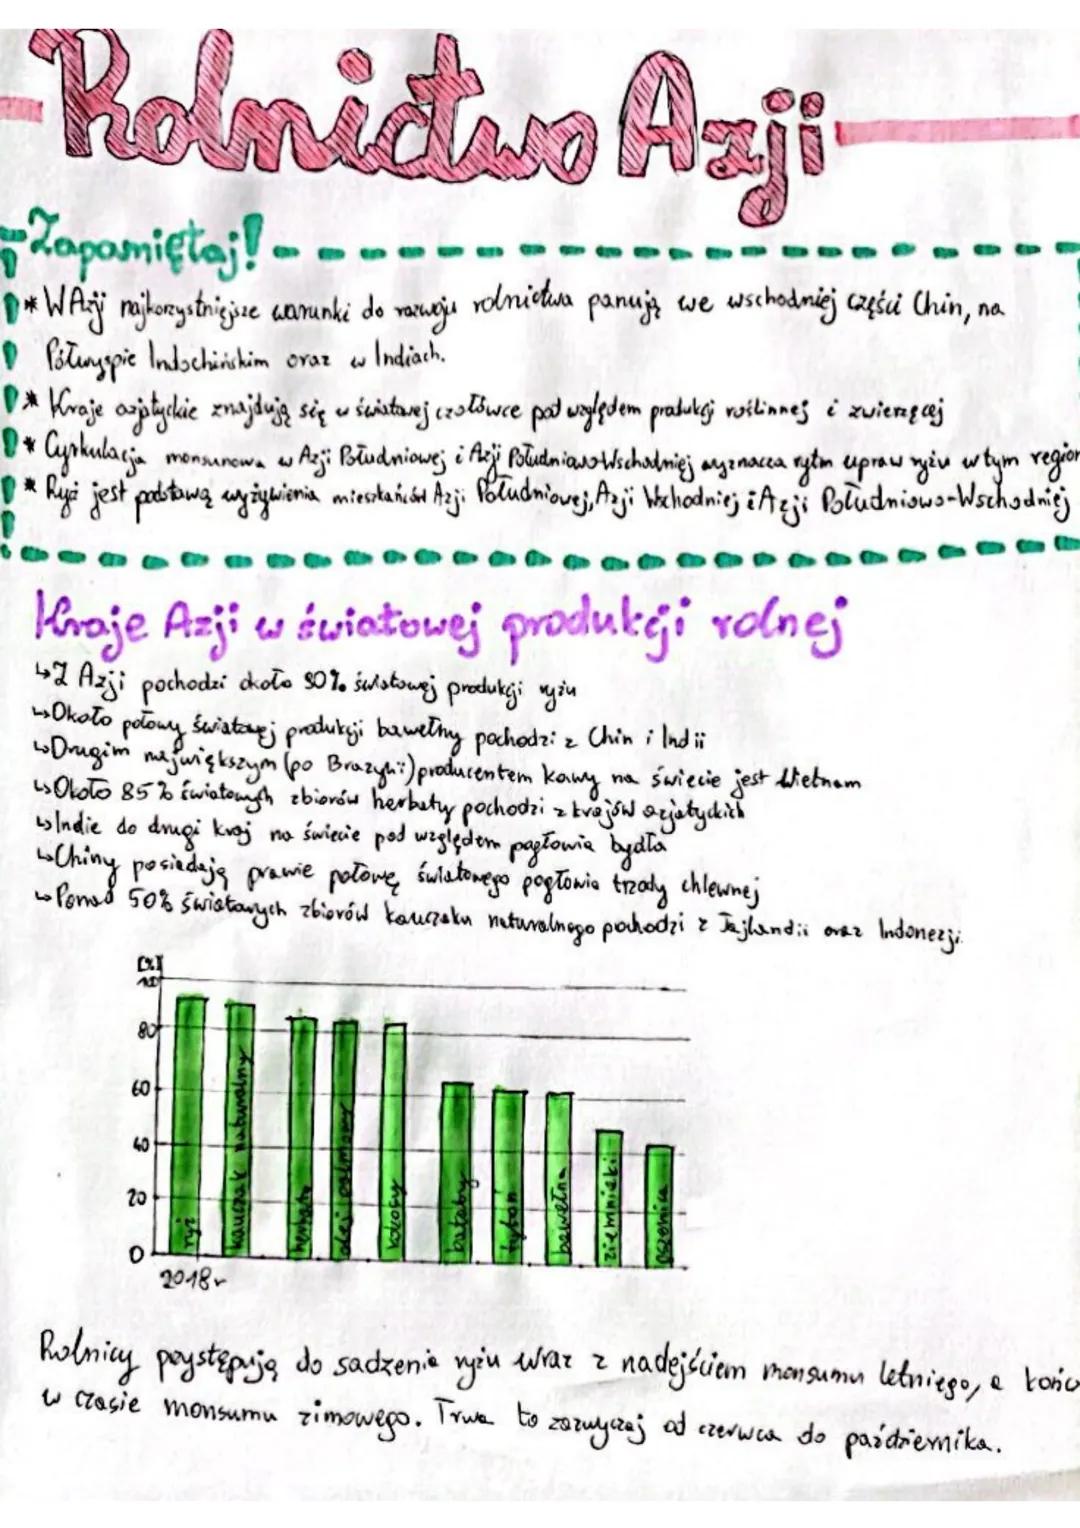 Rolnictwo Azji
Zapamiętaj!
* W Azji najkorzystniejsze warunki do rozwoju rolnictwa panują we wschodniej części Chin, na
Półwyspie Indochińskim oraz w Indiach.
* Kraje azjatyckie znajdują się w światowej czołówce pod względem produkcji roślinnej i zwierzęcej
* Cyrkulacja monsunowa w Azji Południowej i Azji Południowo-Wschodniej wyznacza rytm upraw ryżu w tym region
* Ryż jest podstawą wyżywienia mieszkańców Azji Południowej, Azji Wschodniej i Azji Południowo-Wschodniej
Kraje Azji w światowej produkcji rolnej
↳ Z Azji pochodzi około 90% światowej produkcji ryżu
↳ Około połowy światowej produkcji bawełny pochodzi z Chin i Indii
↳ Drugim największym (po Brazylii) producentem kawy na świecie jest Wietnam
↳ Około 85% światowych zbiorów herbaty pochodzi z krajów azjatyckich
↳ Indie do drugi kraj na świecie pod względem pogłowia bydła
↳ Chiny posiadają prawie połowę światowego pogłowia trzody chlewnej
↳ Ponad 50% światowych zbiorów kauczuku naturalnego pochodzi z Tajlandii oraz Indonezji
[%]
80
60
40
20
0
ryż
kauczuk naturalny
herbata
olej palmowy
kokosy
bataty
tytoń
bawełna
ziemniaki
pszenica
2018r
Rolnicy przystępują do sadzenia ryżu wraz z nadejściem monsumu letniego, a końc
w czasie monsumu zimowego. Trwa to zazwyczaj od czerwca do października.